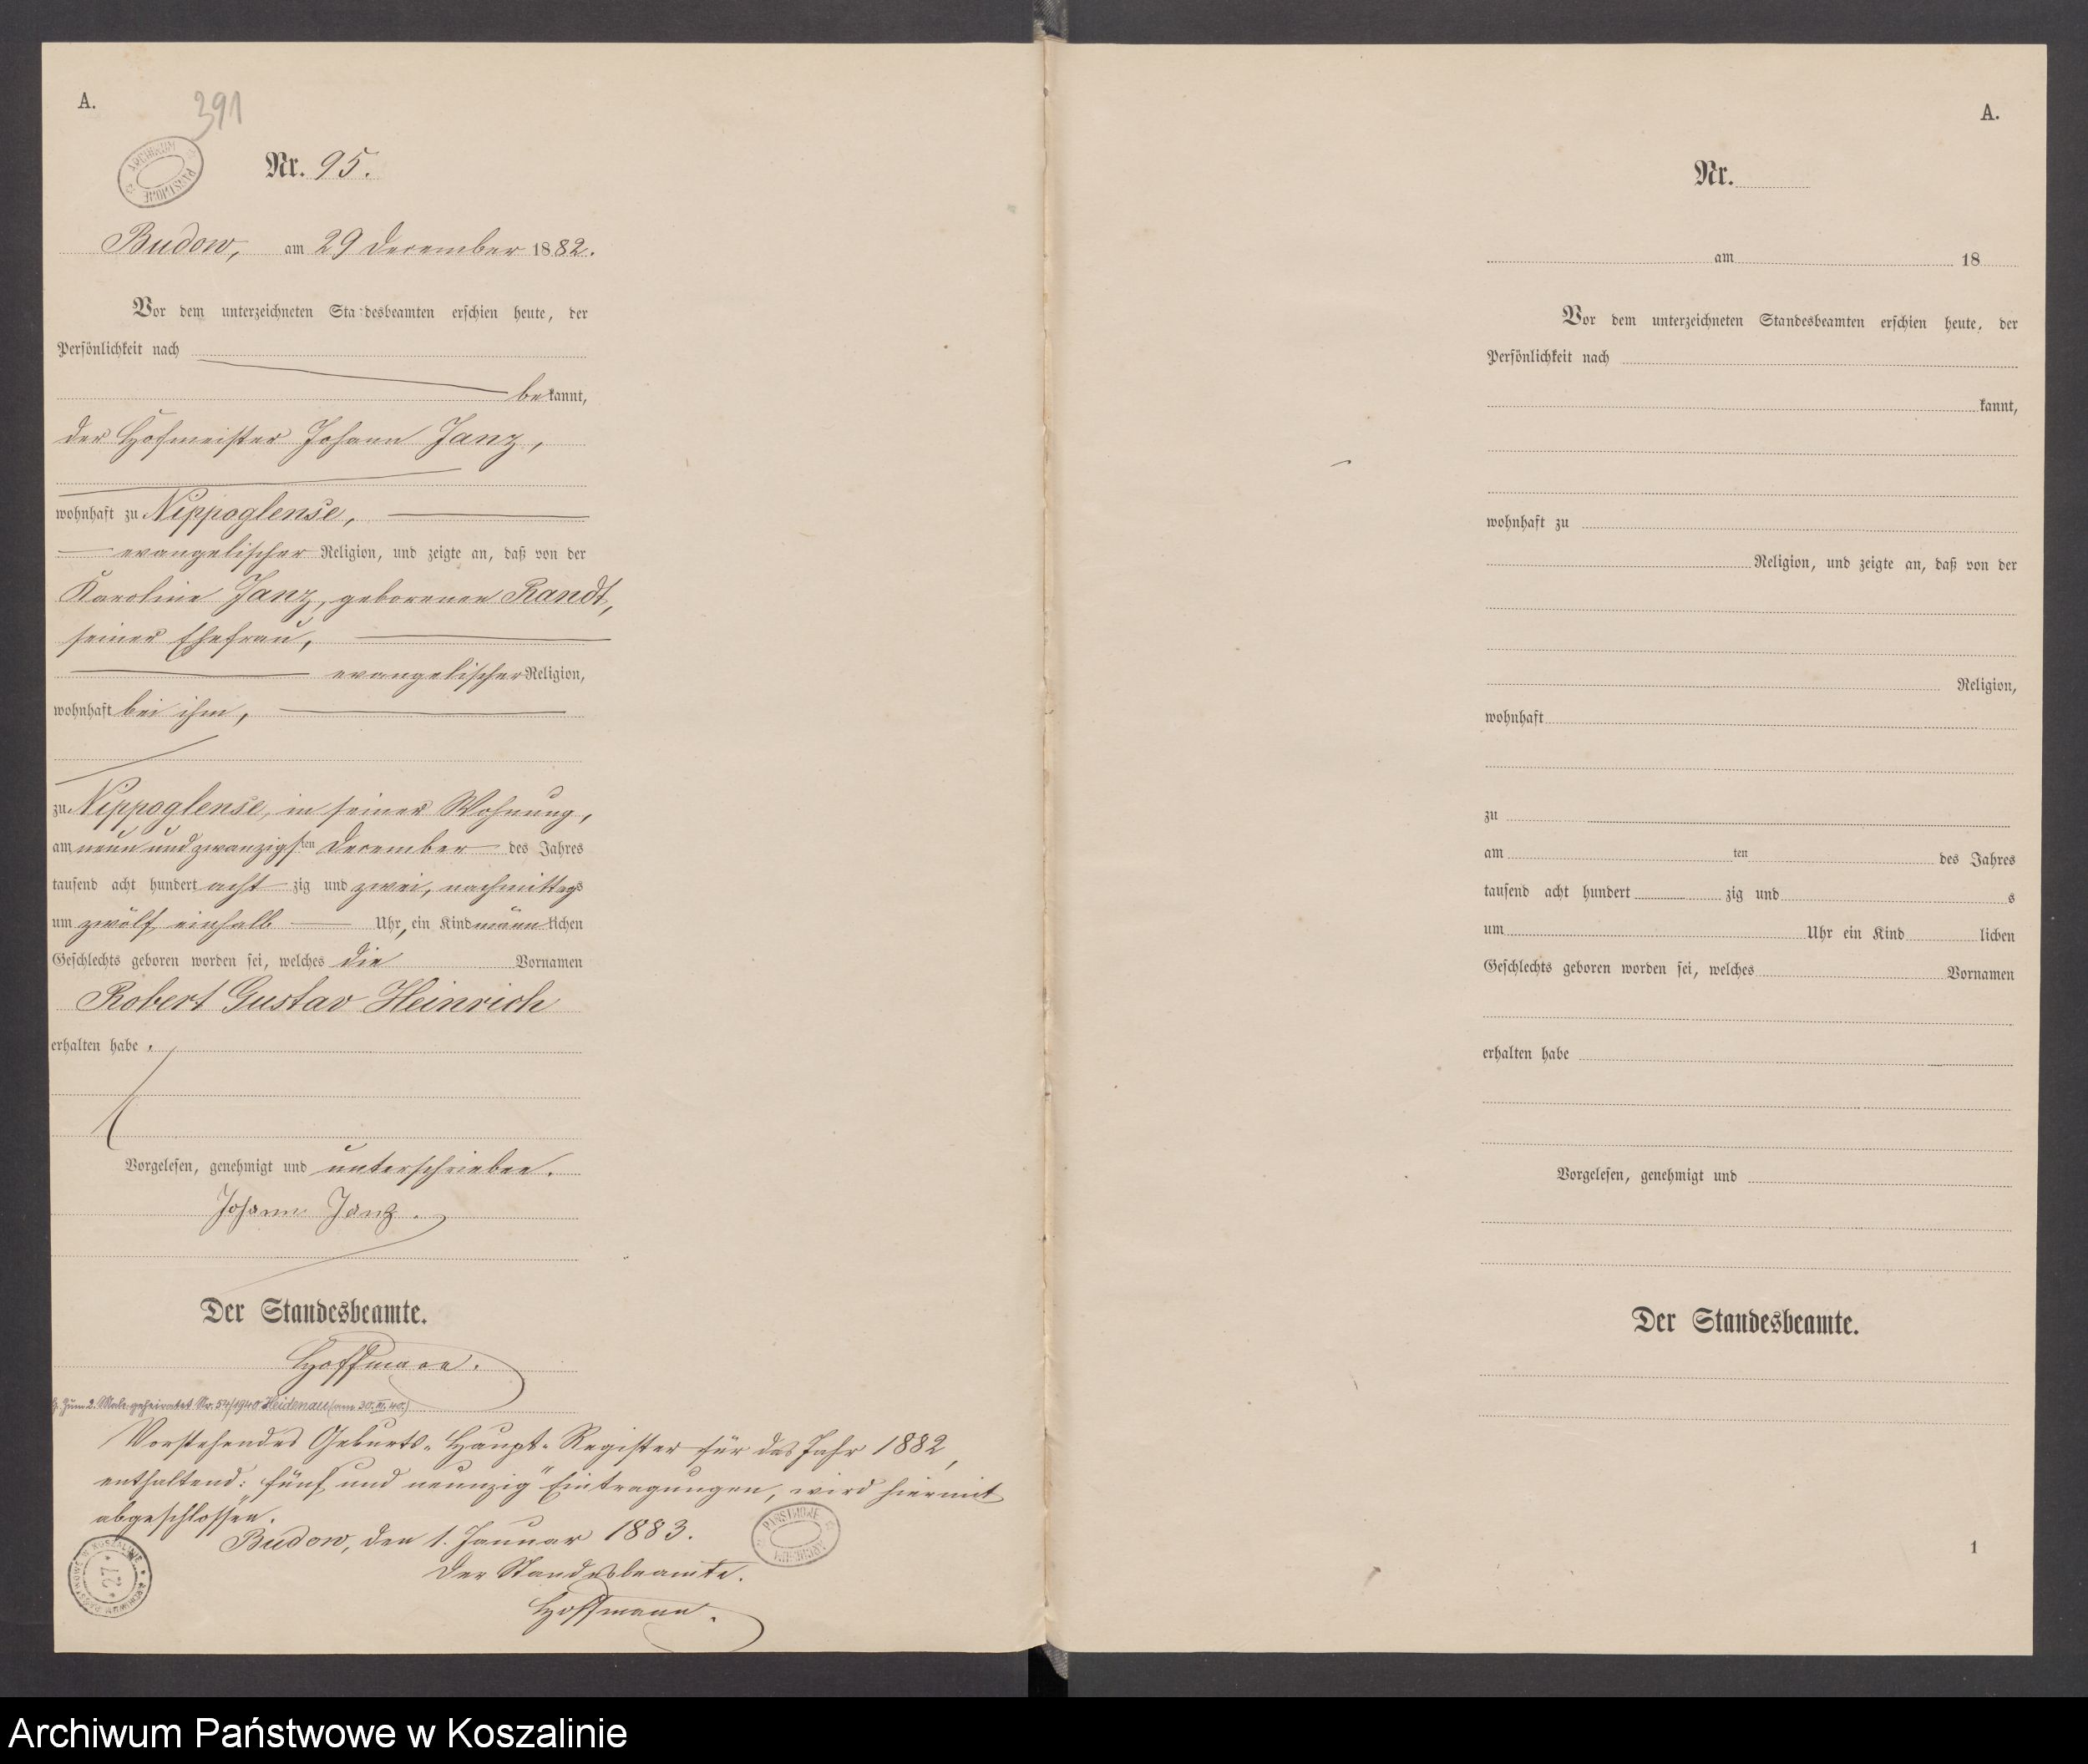 A.
391
ARCHIWUM PAŃSTWOWE
Nr. 95.
Budow, am 29 December 1882.
Vor dem unterzeichneten Sta:desbeamten erschien heute, der
Persönlichkeit nach
bekannt,
der Hofmeister Johann Janz,
wohnhaft zu Nippoglense,
evangelischer Religion, und zeigte an, daß von der
Karoline Janz, geborenen Randt,
seiner Ehefrau,
evangelischer Religion,
wohnhaft bei ihm,
zu Nippoglense, in seiner Wohnung,
am neun und zwanzigsten December des Jahres
tausend acht hundert acht zig und zwei, nachmittags
um zwölf einhalb Uhr, ein Kind männlichen
Geschlechts geboren worden sei, welches die Vornamen
Robert Gustav Heinrich
erhalten habe.
Vorgelesen, genehmigt und unterschrieben.
Johann Janz.
Der Standesbeamte.
Hoffmann.
Zum 2. Male geheiratet Nr. 54/1940 Heidenau (am 30. III. 40.)
Vorstehendes Geburts-Haupt-Register für das Jahr 1882,
enthaltend: „fünf und neunzig" Eintragungen, wird hiermit
abgeschlossen.
Budow, den 1. Januar 1883.
Der Standesbeamte.
Hoffmann.
ARCHIWUM PAŃSTWOWE
ARCHIWUM PAŃSTWOWE W KOSZALINIE
* 27 *
A.
Nr.
am 18
Vor dem unterzeichneten Standesbeamten erschien heute, der
Persönlichkeit nach
kannt,
wohnhaft zu
Religion, und zeigte an, daß von der
Religion,
wohnhaft
zu
am ten des Jahres
tausend acht hundert zig und s
um Uhr ein Kind lichen
Geschlechts geboren worden sei, welches Vornamen
erhalten habe
Vorgelesen, genehmigt und
Der Standesbeamte.
1
Archiwum Państwowe w Koszalinie